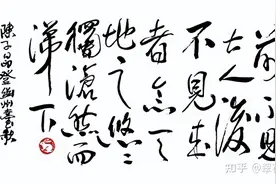 前不見
古人後
不見来
者念天
地之悠々
獨滄然而
涕下
陳子昂登幽州臺歌
知乎